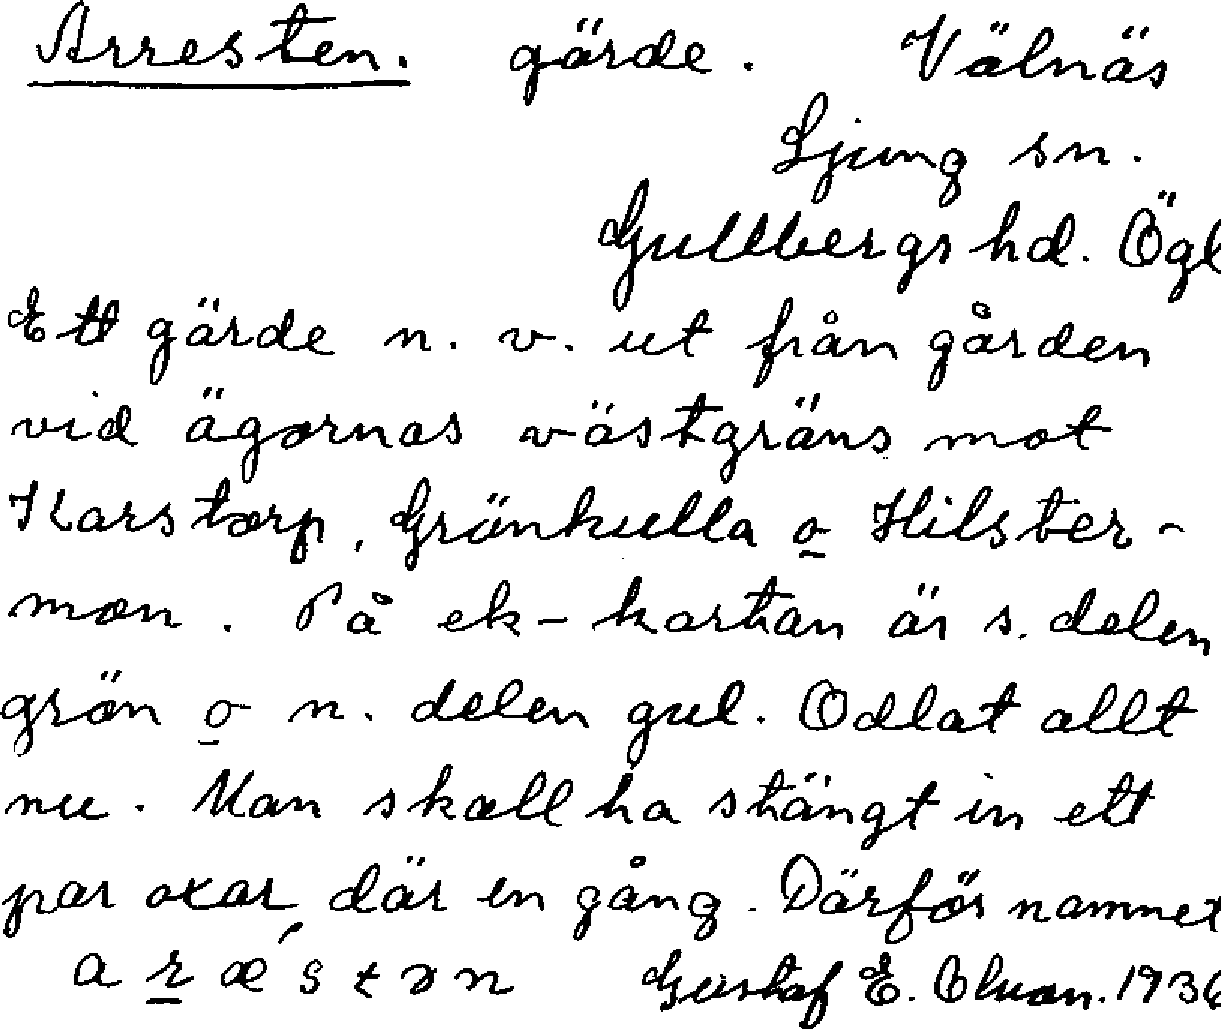 Arresten. gärde. Välnäs
Ljung sn.
Gullbergs hd. Ögl
Ett gärde n. v. ut från gården
vid ägornas västgräns mot
Karstorp, Grönkulla o Hilster-
mon. På ek-kartan är s. delen
grön o n. delen gul. Odlat allt
nu. Man skall ha stängt in ett
par oxar där en gång. Därför namnet
Gustaf E. 1936